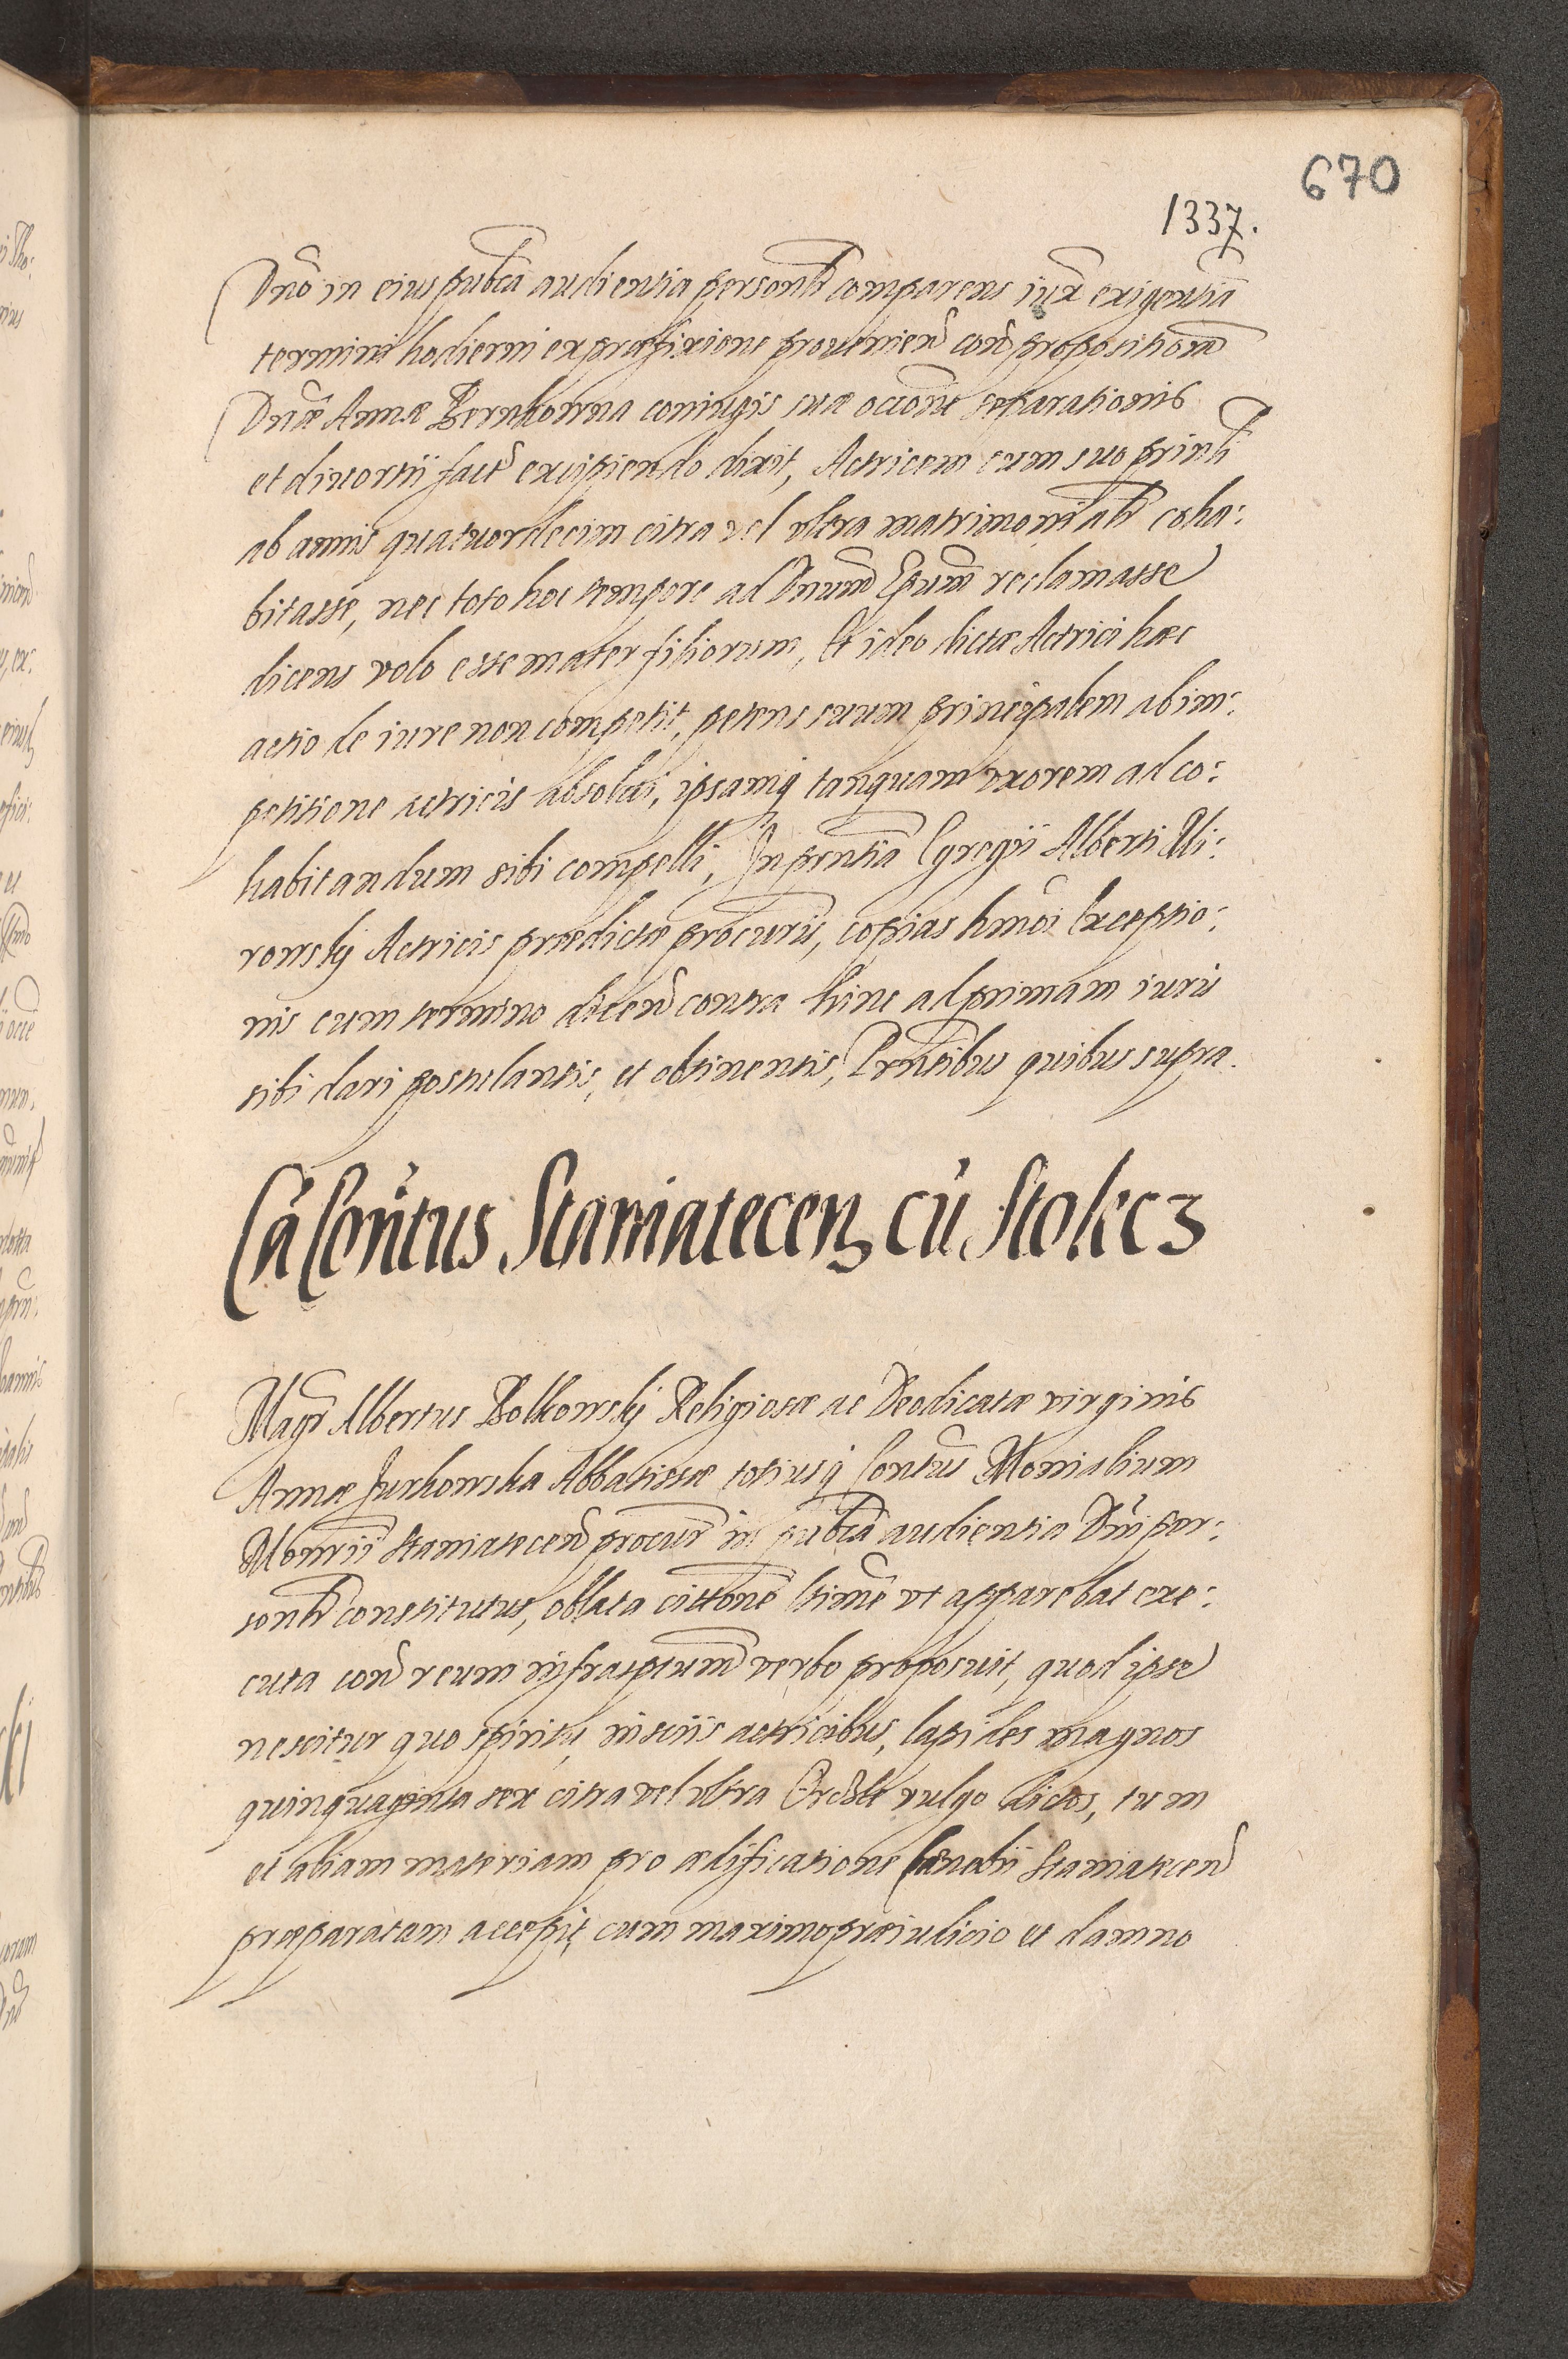 670
1337.
Dno in eius pubca audientia personlr comparens iux exigentia
termini hodierni ex praefixione provenien con propositiona
Dnae Annae Bernkonna coniugis suae occone separationis
et divortii fact excipiendo dixit, Actricem cum suo prinli
ab annis quatuordecim citra vel ultra matrimonialr coha:
bitasse, nec toto hoc tempore ad Dnum Epum reclamasse
dicens volo esse mater filiorum, Et ideo dictae Actrici haec
actio de iure non competit, petens suum principalem ab im:
petitione actricis absolvi, ipsamq tanquam uxorem ad co:
habitandum sibi compelli, In prntia Egregii Alberti
ronskij Actricis praedictae procuris, copias hmoi Exceptio:
nis cum termino dicen contra hinc ad primam iuris
sibi dari postulantis, et obtinentis, Prntibus quibus supra.
Ca Contus Staniatecen cu Stokcz
Magr Albertus Bolkowskij Religiosae ac Deodicatae virginis
Annae Jurkowska Abbatissae totiusq Contus Monialium
Monrii Staniatecen procur in pubca audientia Dni per:
sonlr constitutus, oblata cittone ltime ut apparebat exe:
cuta con reum infrasptum verbo proposuit, quod ipse
nescitur quo spiritu, insciis actricibus, lapides magnos
quinquaginta sex citra vel ultra vulgo dictos, tum
et aliam materiam pro aedificatione Caenobii Staniatecen
praeparatam accepit cum maximo praeiudicio et damno